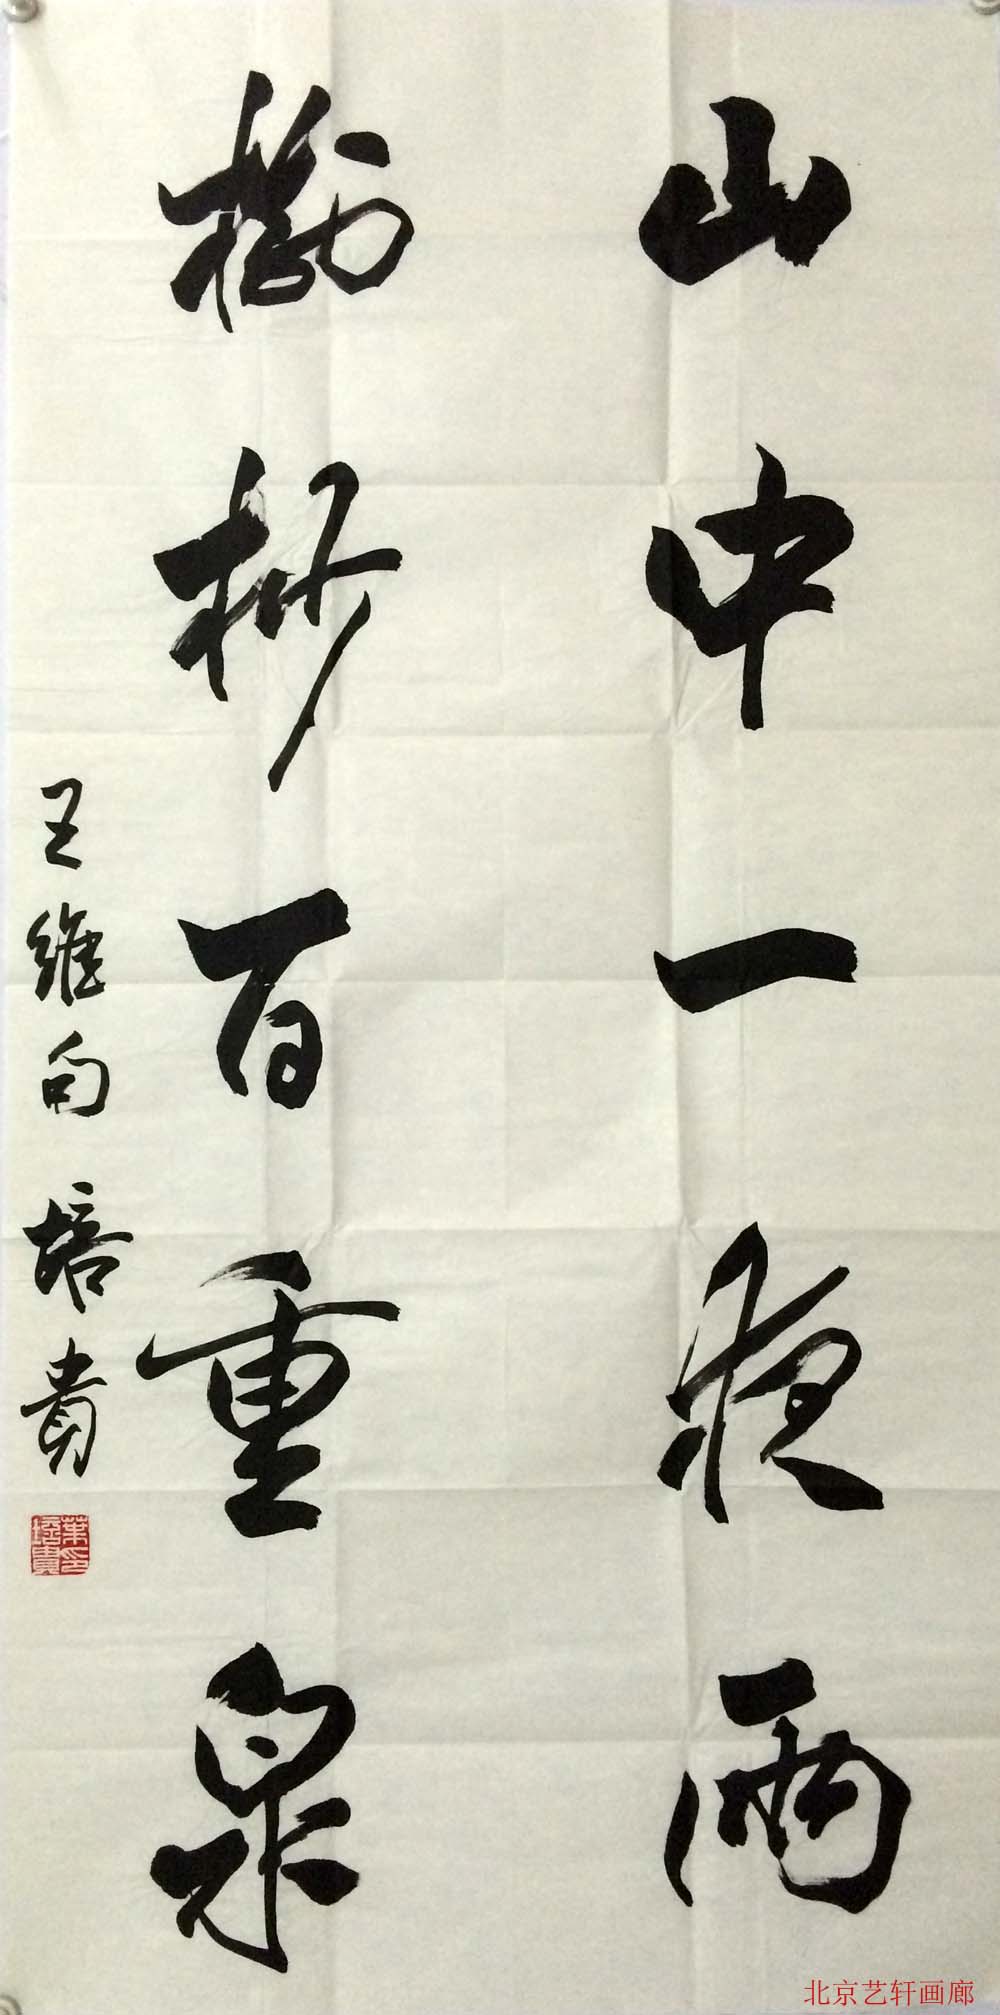 山中一夜雨
樹杪百重泉
王維句 培貴
葉培貴印
北京艺轩画廊